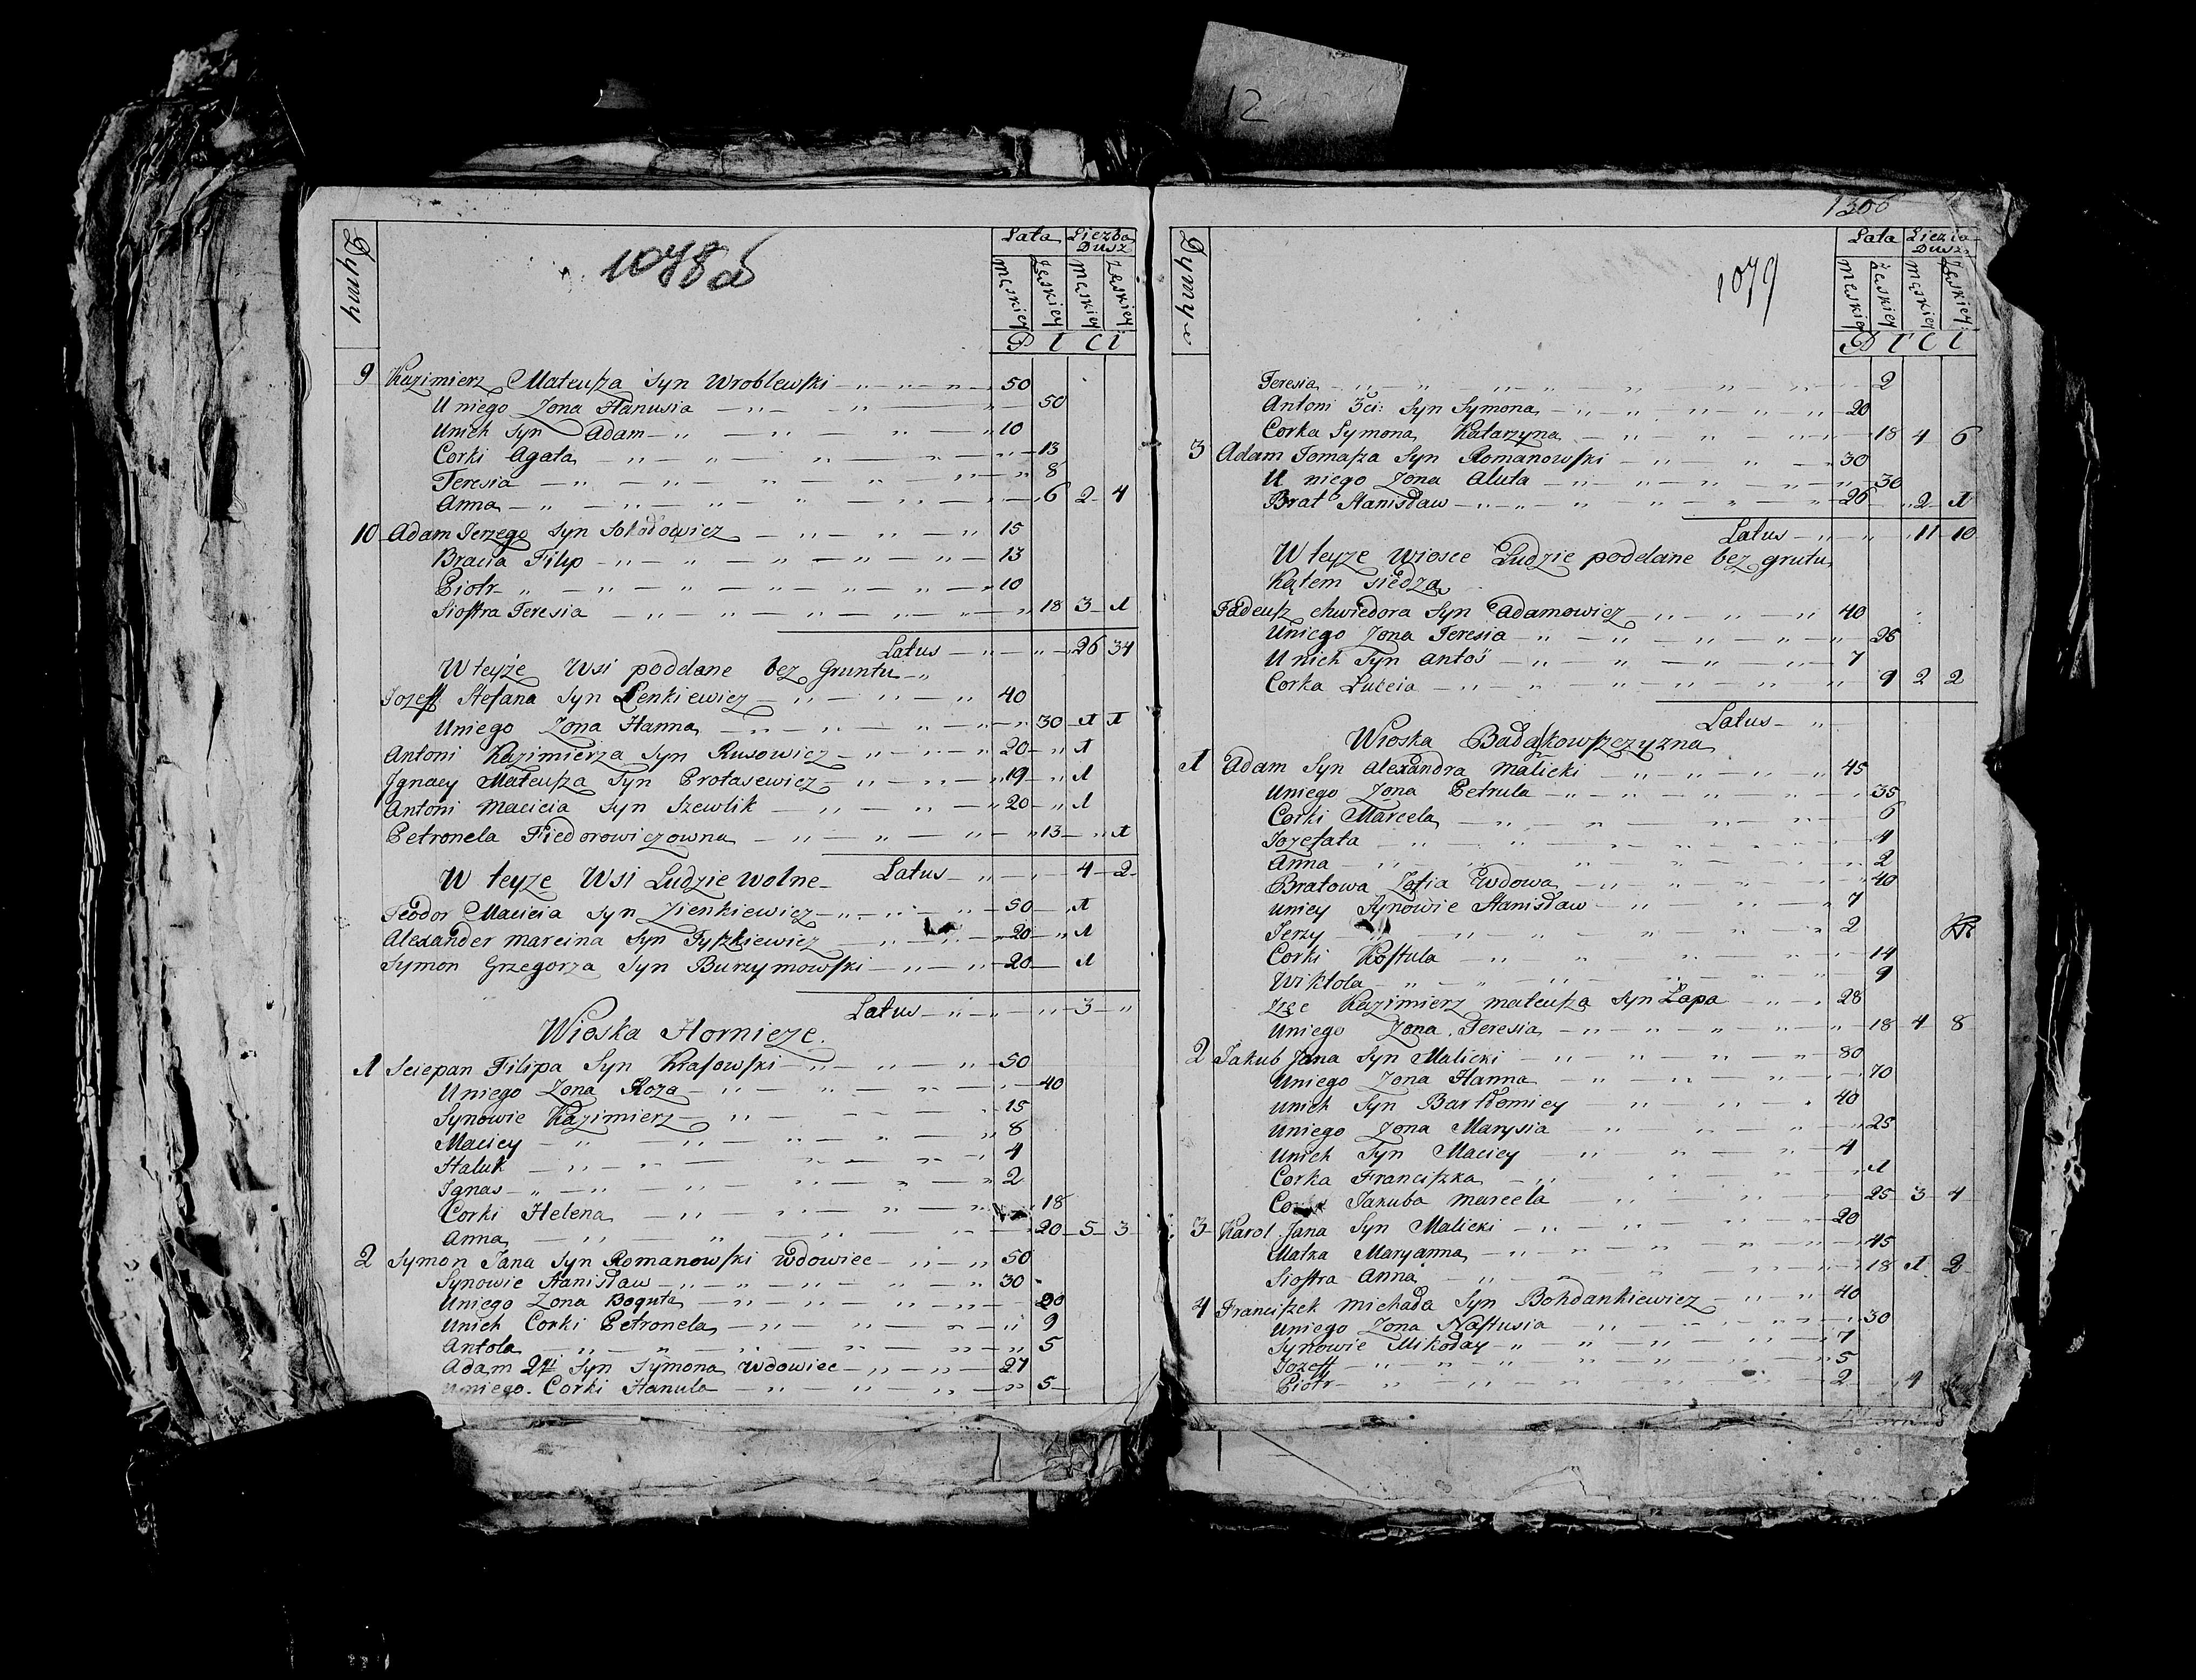 12
1078 об
Dymy
Lata Liczba Dusz
Męskiey Żeskiey Męskiey Żeskiey
P l C l
9 Kazimierz Mateusza Syn Wroblewski 50
U niego Zona Hanusia 50
Unich Syn Adam 10
Corki Agata 13
Teresia 8
Anna 6 2 4
10 Adam Jerzego Syn Sokołowicz 15
Bracia Filip 13
Piotr 10
Siostra Teresia 18 3 1
Latus 26 34
W teyże Wsi poddane bez Gruntu
Jozeff Stefana Syn Lenkiewicz 40
Uniego Zona Hanna 30 1 1
Antoni Kazimierza Syn Rusowicz 20 1
Jgnacy Mateusza Syn Protasewicz 19 1
Antoni Macieia Syn Szewlik 20 1
Petronela Fiedorowiczowna 13 1
Latus 4 2
W teyże Wsi Ludzie wolne
Teodor Macieia Syn Zienkiewicz 50 1
Alexander Marcina Syn Tyszkiewicz 20 1
Symon Grzegorza Syn Burzymowski 20 1
Latus 3
Wioska Hornicze.
1 Sciepan Filipa Syn Krasowski 50
Uniego Zona Roza 40
Synowie Kazimierz 15
Maciey 8
Haluk 4
Jgnas 2
Corki Helena 18
Anna 20 5 3
2 Symon Jana Syn Romanowski Wdowiec 50
Synowie Stanisław 30
Uniego Zona Boguta 20
Unich Corki Petronela 9
Antola 5
Adam 2gi Syn Symona Wdowiec 27
Uniego Corki Hanula 5
1306
1079
Dymy
Lata Liczba Dusz
Męskiey Żeskiey Męskiey Żeskiey
P l C l
Teresia 2
Antoni 3ci: Syn Symona 20
Corka Symona Katarzyna 18 4 6
3 Adam Tomasza Syn Romanowski 30
U niego Zona Aluta 30
Brat Stanisław 26 2 1
Latus 11 10
W teyże Wiosce Ludzie poddane bez grutu
Kątem siedzą
Tadeusz Chwiedora Syn Adamowicz 40
Uniego Zona Teresia 26
U nich Syn Antoś 7
Corka Luceia 9 2 2
Latus
Wioska Badakowszczyzna
1 Adam Syn Alexandra Malicki 45
Uniego Zona Petrula 35
Corki Marcela 6
Jozefata 4
Anna 2
Bratowa Zofia Wdowa 40
Uniey Synowie Stanisław 7
Jerzy 2
Corki Kostula 14
Wiktola 9
Zięc Kazimierz Mateusza Syn Łapa 28
Uniego Zona Teresia 18 4 8
2 Jakub Jana Syn Malicki 80
Uniego Zona Hanna 70
Unich Syn Bartłomiey 40
Uniego Zona Marysia 25
Unich Syn Maciey 4
Corka Franciszka 1
Corka Jakuba Marcela 25 3 4
3 Karol Jana Syn Malicki 20
Matka Maryanna 45
Siostra Anna 18 1 2
4 Franciszek Michała Syn Bohdankiewicz 40
Uniego Zona Nastusia 30
Synowie Mikołay 7
Jozeff 5
Piotr 2 4